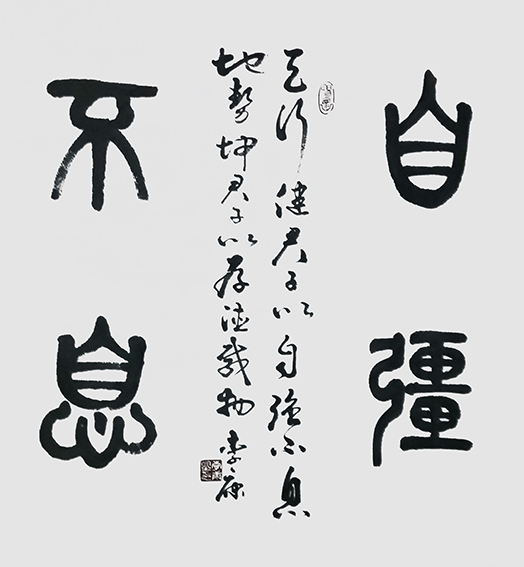 自彊
天行健君子以自强不息
地勢坤君子以厚德載物 李
不息